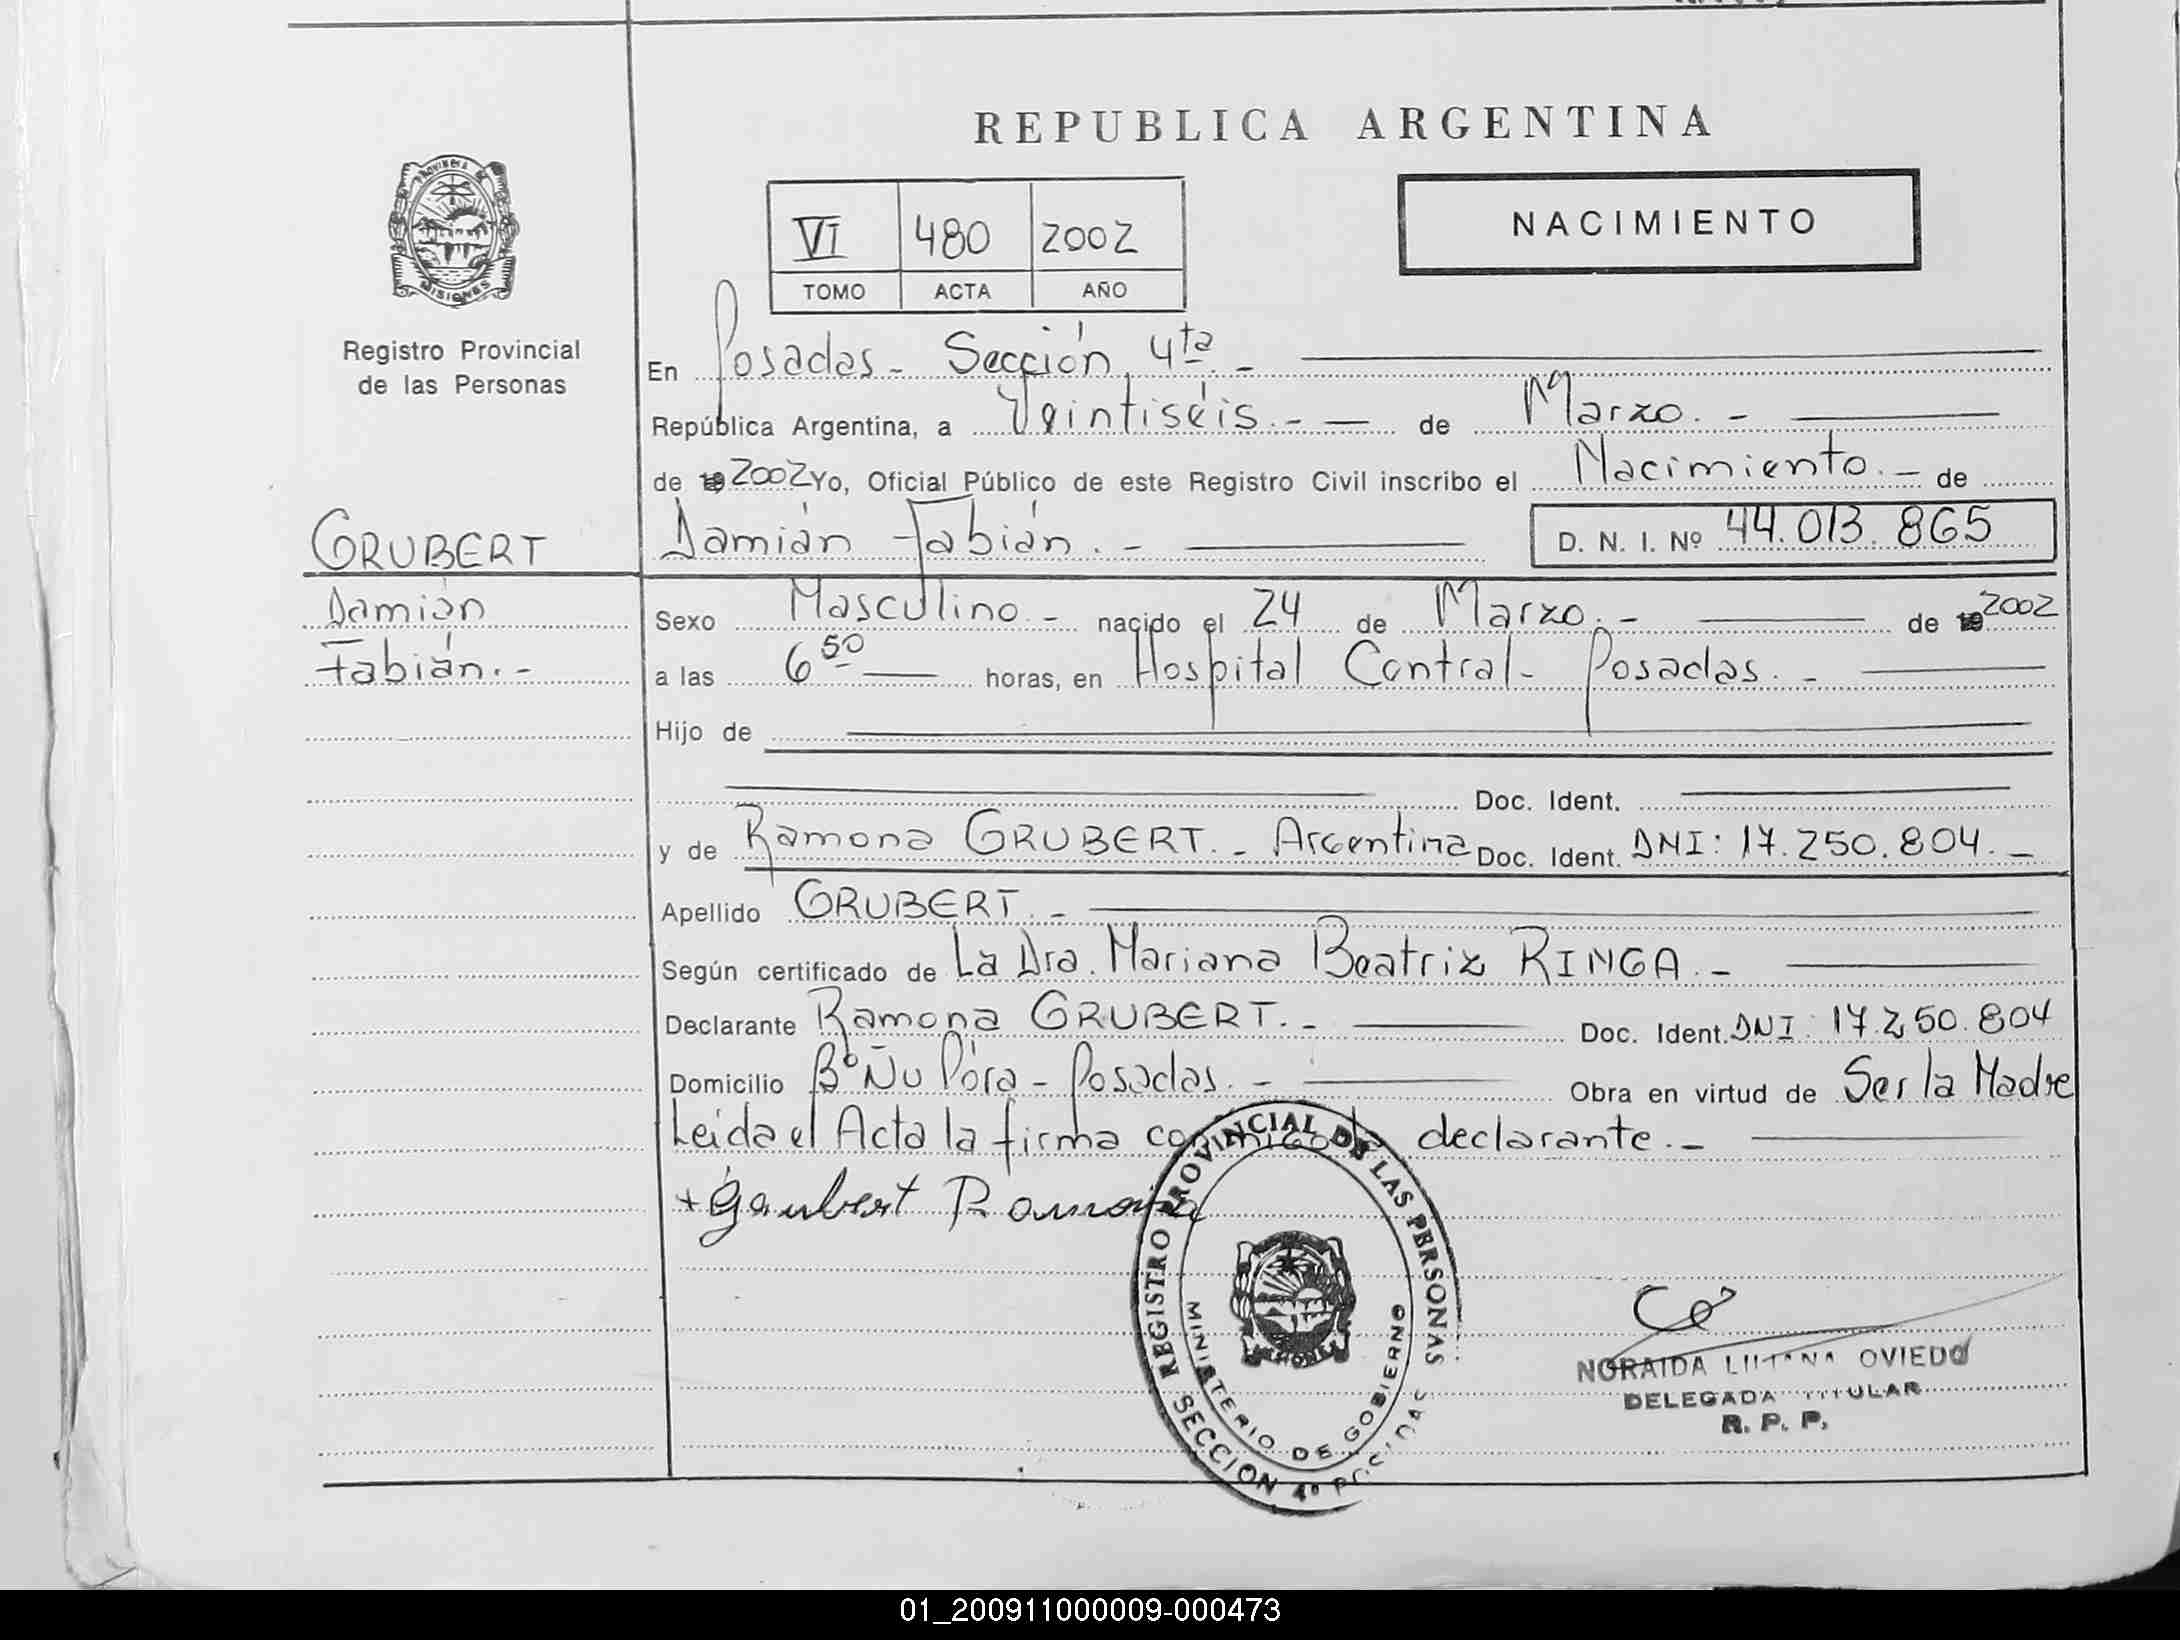 REPUBLICA ARGENTINA
PROVINCIA DE
MISIONES
Registro Provincial
de las Personas
VI 480 2002
TOMO ACTA AÑO
NACIMIENTO
En Posadas - Sección 4ta. -
República Argentina, a Veintiséis. - de Marzo. -
de 19 2002 Yo, Oficial Público de este Registro Civil inscribo el Nacimiento. - de
GRUBERT
Damián Fabián. - D. N. I. Nº 44.013.865
Damián
Fabián. -
Sexo Masculino. - nacido el 24 de Marzo. - de 19 2002
a las 6 50 horas, en Hospital Central - Posadas. -
Hijo de
Doc. Ident.
y de Ramona GRUBERT. - Argentina Doc. Ident. DNI: 17.250.804. -
Apellido GRUBERT. -
Según certificado de La Dra. Mariana Beatriz RINGA. -
Declarante Ramona GRUBERT. - Doc. Ident. DNI: 17.250.804
Domicilio Bº Ñu Porá - Posadas. - Obra en virtud de Ser la Madre
Leída el Acta la firma conmigo la declarante. -
+ Graubert Ramona
REGISTRO PROVINCIAL DE LAS PERSONAS
MINISTERIO DE GOBIERNO
SECCION 4º
MISIONES
NORAIDA LILIANA OVIEDO
DELEGADA TITULAR
R. P. P.
01_200911000009-000473